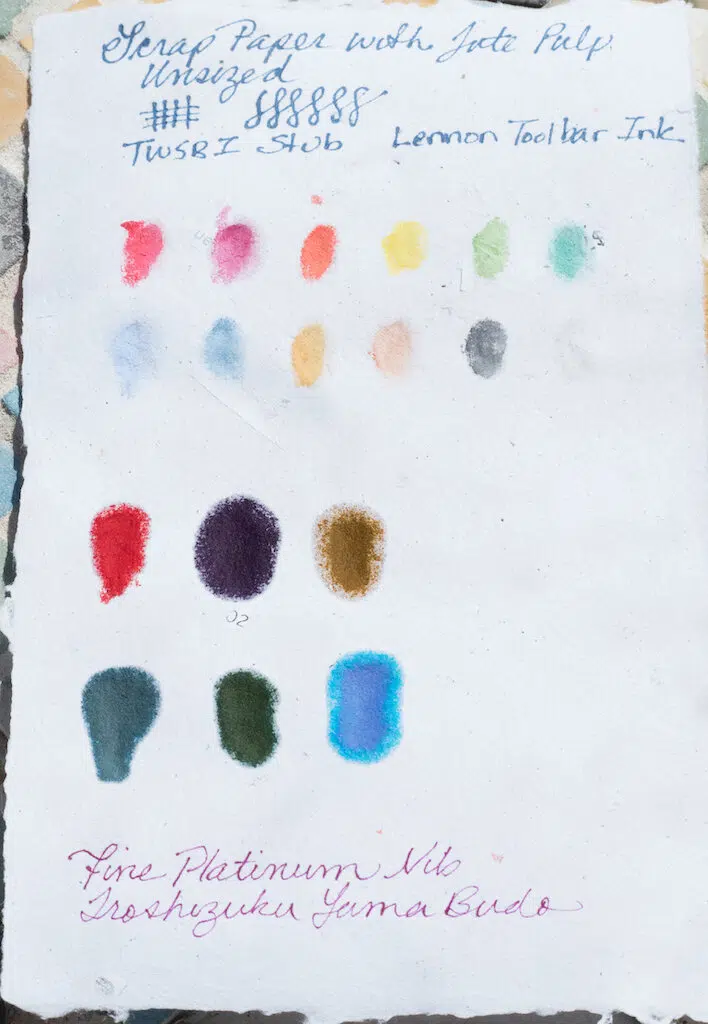 Scrap Paper with Jute Pulp
Unsized
TWSBI Stub Lennon Toolbar Ink
Fine Platinum Nib
Iroshizuku Yama Budo